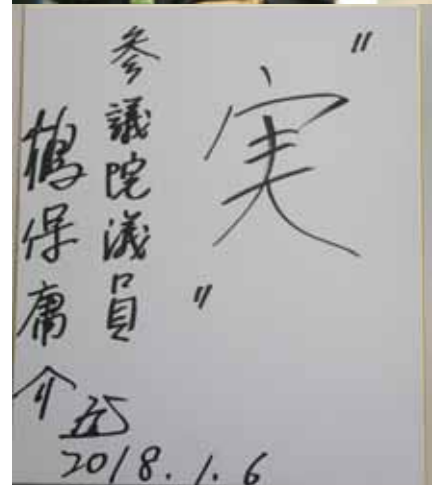 "実"
参議院議員
鶴保庸介
2018.1.6